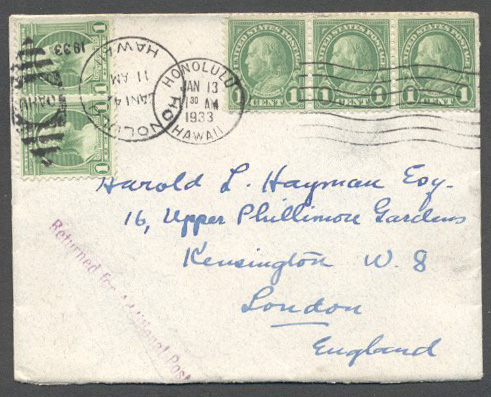 UNITED STATES POSTAGE UNITED STATES POSTAGE UNITED STATES POSTAGE
1 CENT 1 1 CENT 1 1 CENT 1
1
1
HONOLULU
JAN 13
1 30 AM
1933
HAWAII
HONOLULU
JAN 14
11 AM
HAWAII
1933
Harold L. Hayman Esq.
16, Upper Phillimon Gardens
Kensington W. 8
London
England
Returned For Additional Post